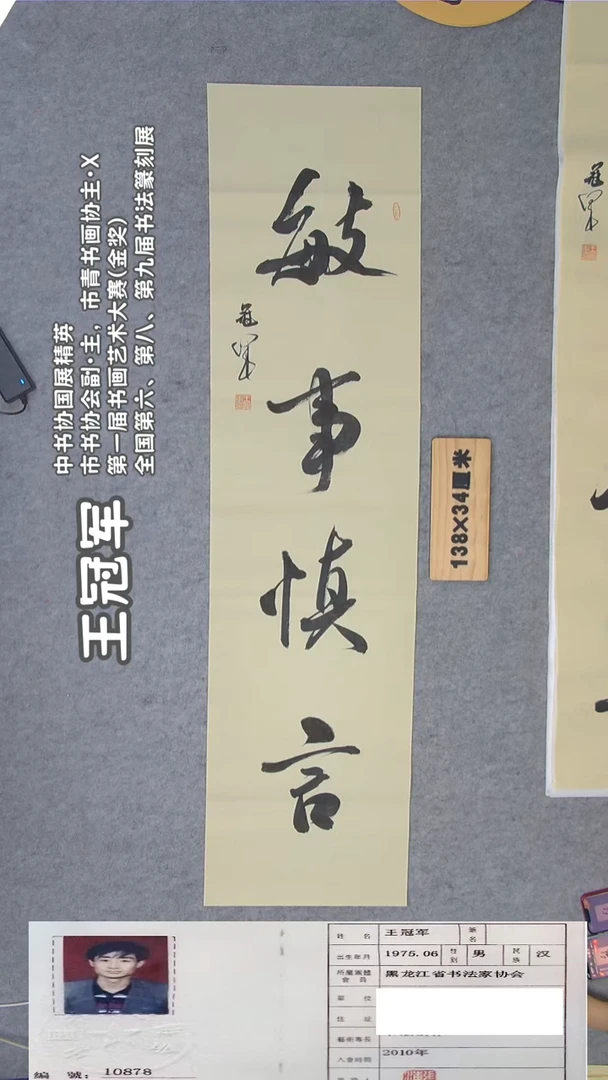 敏事慎言
冠军
冠军
138×34厘米
王冠军
中书协国展精英
市书协会副·主，市青书画协主·X
第一届书画艺术大赛(金奖)
全国第六、第八、第九届书法篆刻展
姓名 王冠军 筆名
出生年月 1975.06 性别 男 民族 汉
所屬團體會員 黑龙江省书法家协会
職
住
藝術專長
入會時間 2010年
編號：10878